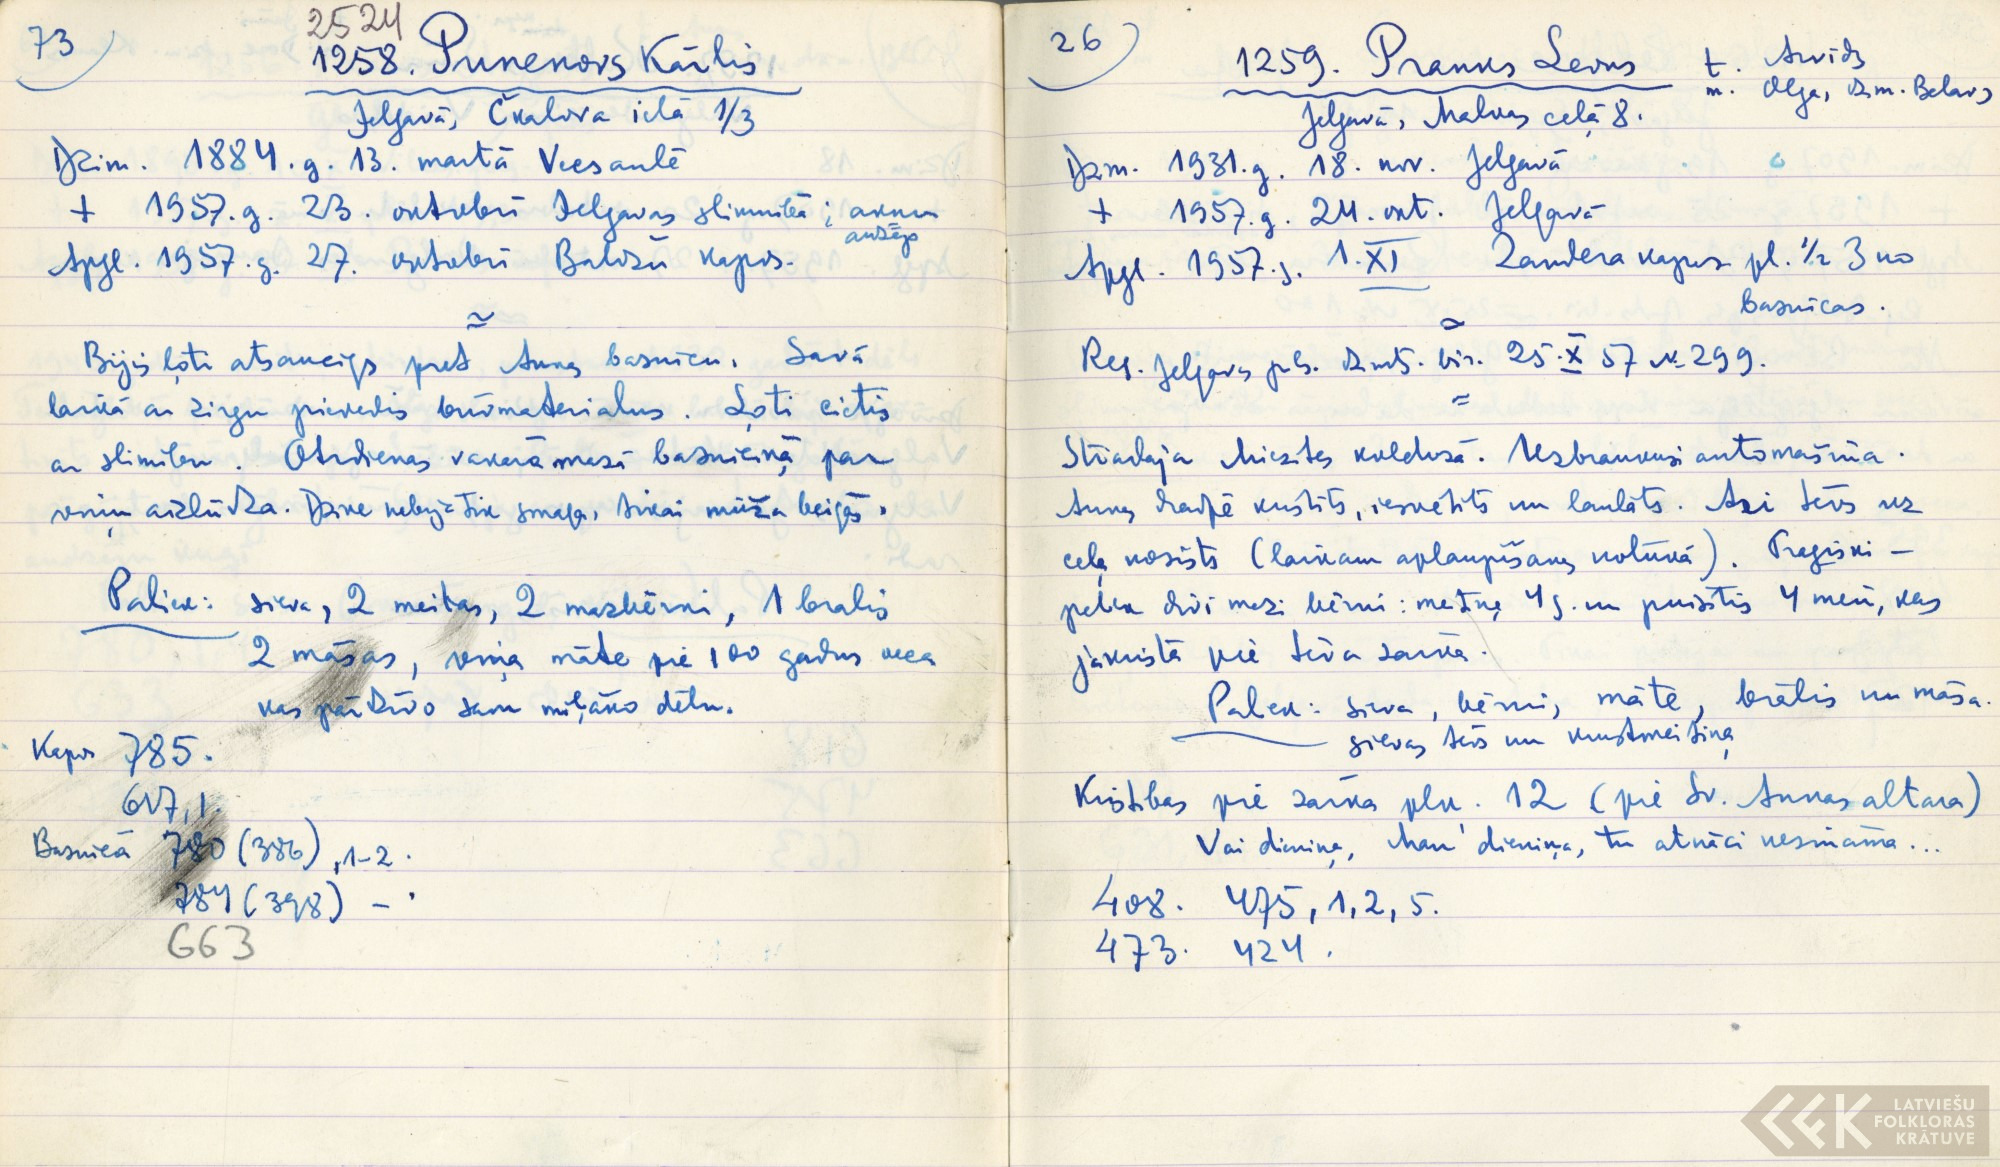 73
2524
1258. Punenovs Kārlis
Jelgavā, Čkalova ielā 1/3
Dzim. 1884. g. 13. martā Vecsaulē
+ 1957. g. 23. oktobrī Jelgavas slimnīcā; aknu
audzējs
Apgl. 1957. g. 27. oktobrī Baložu kapos.
Bijis ļoti atsaucīgs pret Annas baznīcu. Savā
laikā ar zirgu pievedis būvmateriālus. Ļoti cietis
ar slimību. Otrdienas vakarā mazā baznīciņā par
viņu aizlūdza. Dzīve nebijātik smaga, tikai mūža beigās.
Paliek: sieva, 2 meitas, 2 mazbērni, 1 brālis
2 māsas, viņa māte pie 100 gadus veca
kas pārdzīvo savu mīļāko dēlu.
Kapos 785.
617,1.
Baznīcā 780 (386), 1-2.
784 (398) -
663
26
1259. Pranks Leons
t. Arvīds
m. Olga, dzm. Belavs
Jelgavā, Malkas ceļā 8.
Dzm. 1931. g. 18. nov. Jelgavā
+ 1957. g. 24. okt. Jelgavā
Apgl. 1957. g. 1. XI Zandera kapos pl. 1/2 3 no
baznīcas.
Reg. Jelgavas pils. dzimts. bir. 25. X 57 № 299.
Strādāja Miezītes koldozā. Uzbraukusi automašīna.
Annas draudzē kristīts, iesvētīts un laulāts. Arī tēvs uz
ceļa nosists (laikam aplaupīšanas nolūkā). Traģiski -
paliek divi mazi bērni: meitiņa 4 g. un puisītis 4 mēn, kas
jākristā pie tēva zārka.
Paliek: sieva, bērni, māte, brālis un māsa.
sievas tēvs un krustmeitiņa
Kristības pie zārka plk. 12 (pie Sv. Annas altara)
Vai dieniņa, Man' dieniņa, tu atnāci nezināma ...
408. 475, 1, 2, 5.
473. 424.
LATVIEŠU
FOLKLORAS
KRĀTUVE